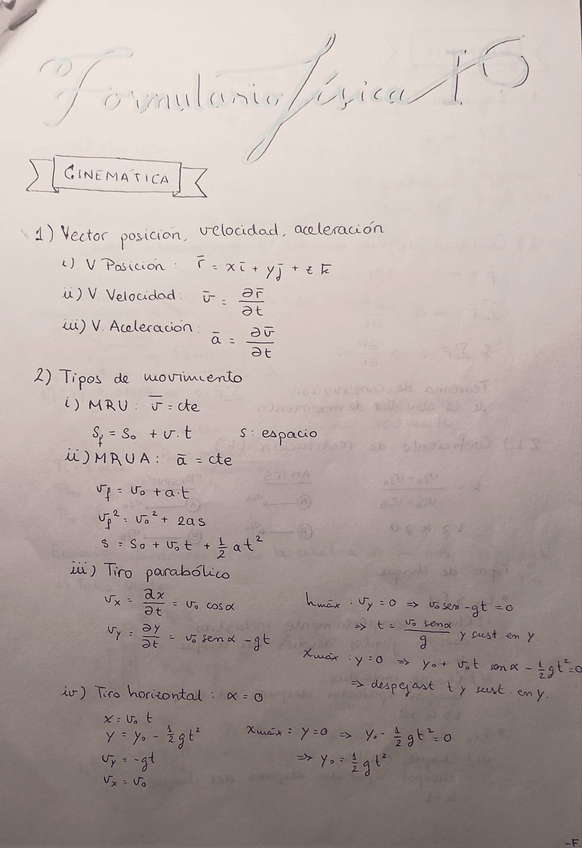 Formulario física I
CINEMÁTICA
1) Vector posición, velocidad, aceleración
i) V Posición: r̄ = xī + yj̄ + z k̄
ii) V Velocidad: v̄ = ∂r̄/∂t
iii) V. Aceleración: ā = ∂v̄/∂t
2) Tipos de movimiento
i) MRU: v̄ = cte
Sf = So + v·t s: espacio
ii) MRUA: ā = cte
vf = vo + a·t
vf² = vo² + 2as
s = so + vot + 1/2 at²
iii) Tiro parabólico
vx = ∂x/∂t = vo cosα
vy = ∂y/∂t = vo senα - gt
hmáx: vy = 0 => vo sen - gt = 0
=> t = vo senα/g y sust en y
xmáx: y = 0 => yo + vot senα - 1/2 gt² = 0
=> despejast t y sust. en y.
iv) Tiro horizontal: α = 0
x = vo t
y = yo - 1/2 gt²
vy = -gt
vx = vo
xmáx: y = 0 => yo - 1/2 gt² = 0
=> yo = 1/2 gt²